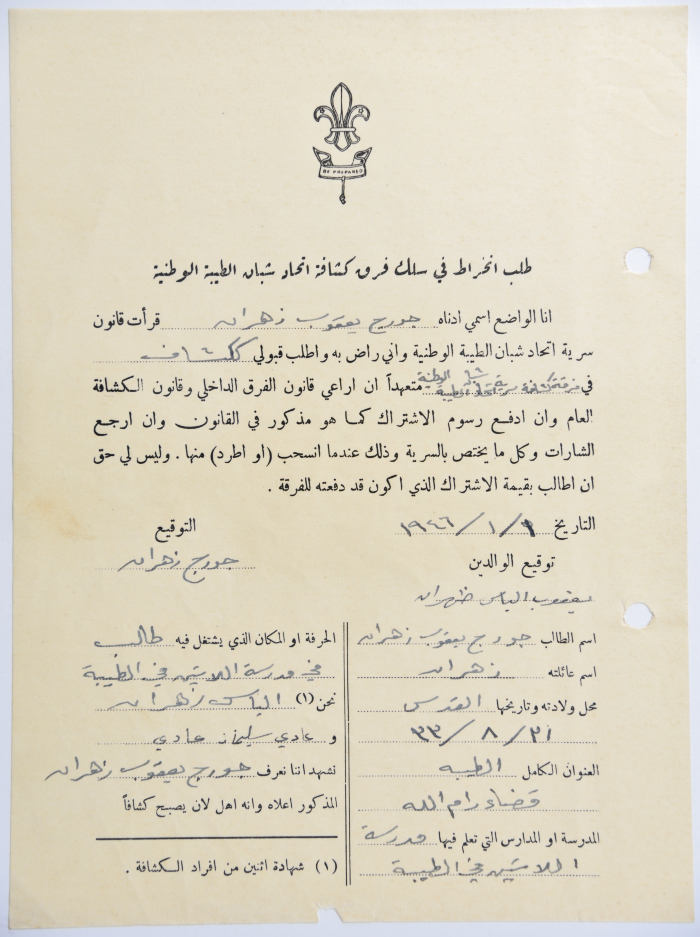 BE PREPARED
طلب انخراط في سلك فرق كشافة اتحاد شبان الطيبة الوطنية
انا الواضع اسمي ادناه جورج يعقوب زهران قرأت قانون
سرية اتحاد شبان الطيبة الوطنية واني راض به واطلب قبولي ككشاف
في فرقة كشافة سرية اتحاد شبان الطيبة الوطنية متعهداً ان اراعي قانون الفرق الداخلي وقانون الكشافة
العام وان ادفع رسوم الاشتراك كما هو مذكور في القانون وان ارجع
الشارات وكل ما يختص بالسرية وذلك عندما انسحب (او اطرد) منها . وليس لي حق
ان اطالب بقيمة الاشتراك الذي اكون قد دفعته للفرقة .
التاريخ ١/١/١٩٤٦ التوقيع
توقيع الوالدين جورج زهران
يعقوب الياس ظهران
اسم الطالب جورج يعقوب زهران
اسم عائلته زهران
محل ولادته وتاريخها القدس
٢١/٨/٣٣
العنوان الكامل الطيبه
قضاء رام الله
المدرسة او المدارس التي تعلم فيها مدرسة
اللاتين في الطيبة
الحرفة او المكان الذي يشتغل فيه طالب
في مدرسة اللاتين في الطيبة
نحن (١) الياس زهران
و عادي سليمان عادي
نشهد اننا نعرف جورج يعقوب زهران
المذكور اعلاه وانه اهل لان يصبح كشافاً
(١) شهادة اثنين من افراد الكشافة .